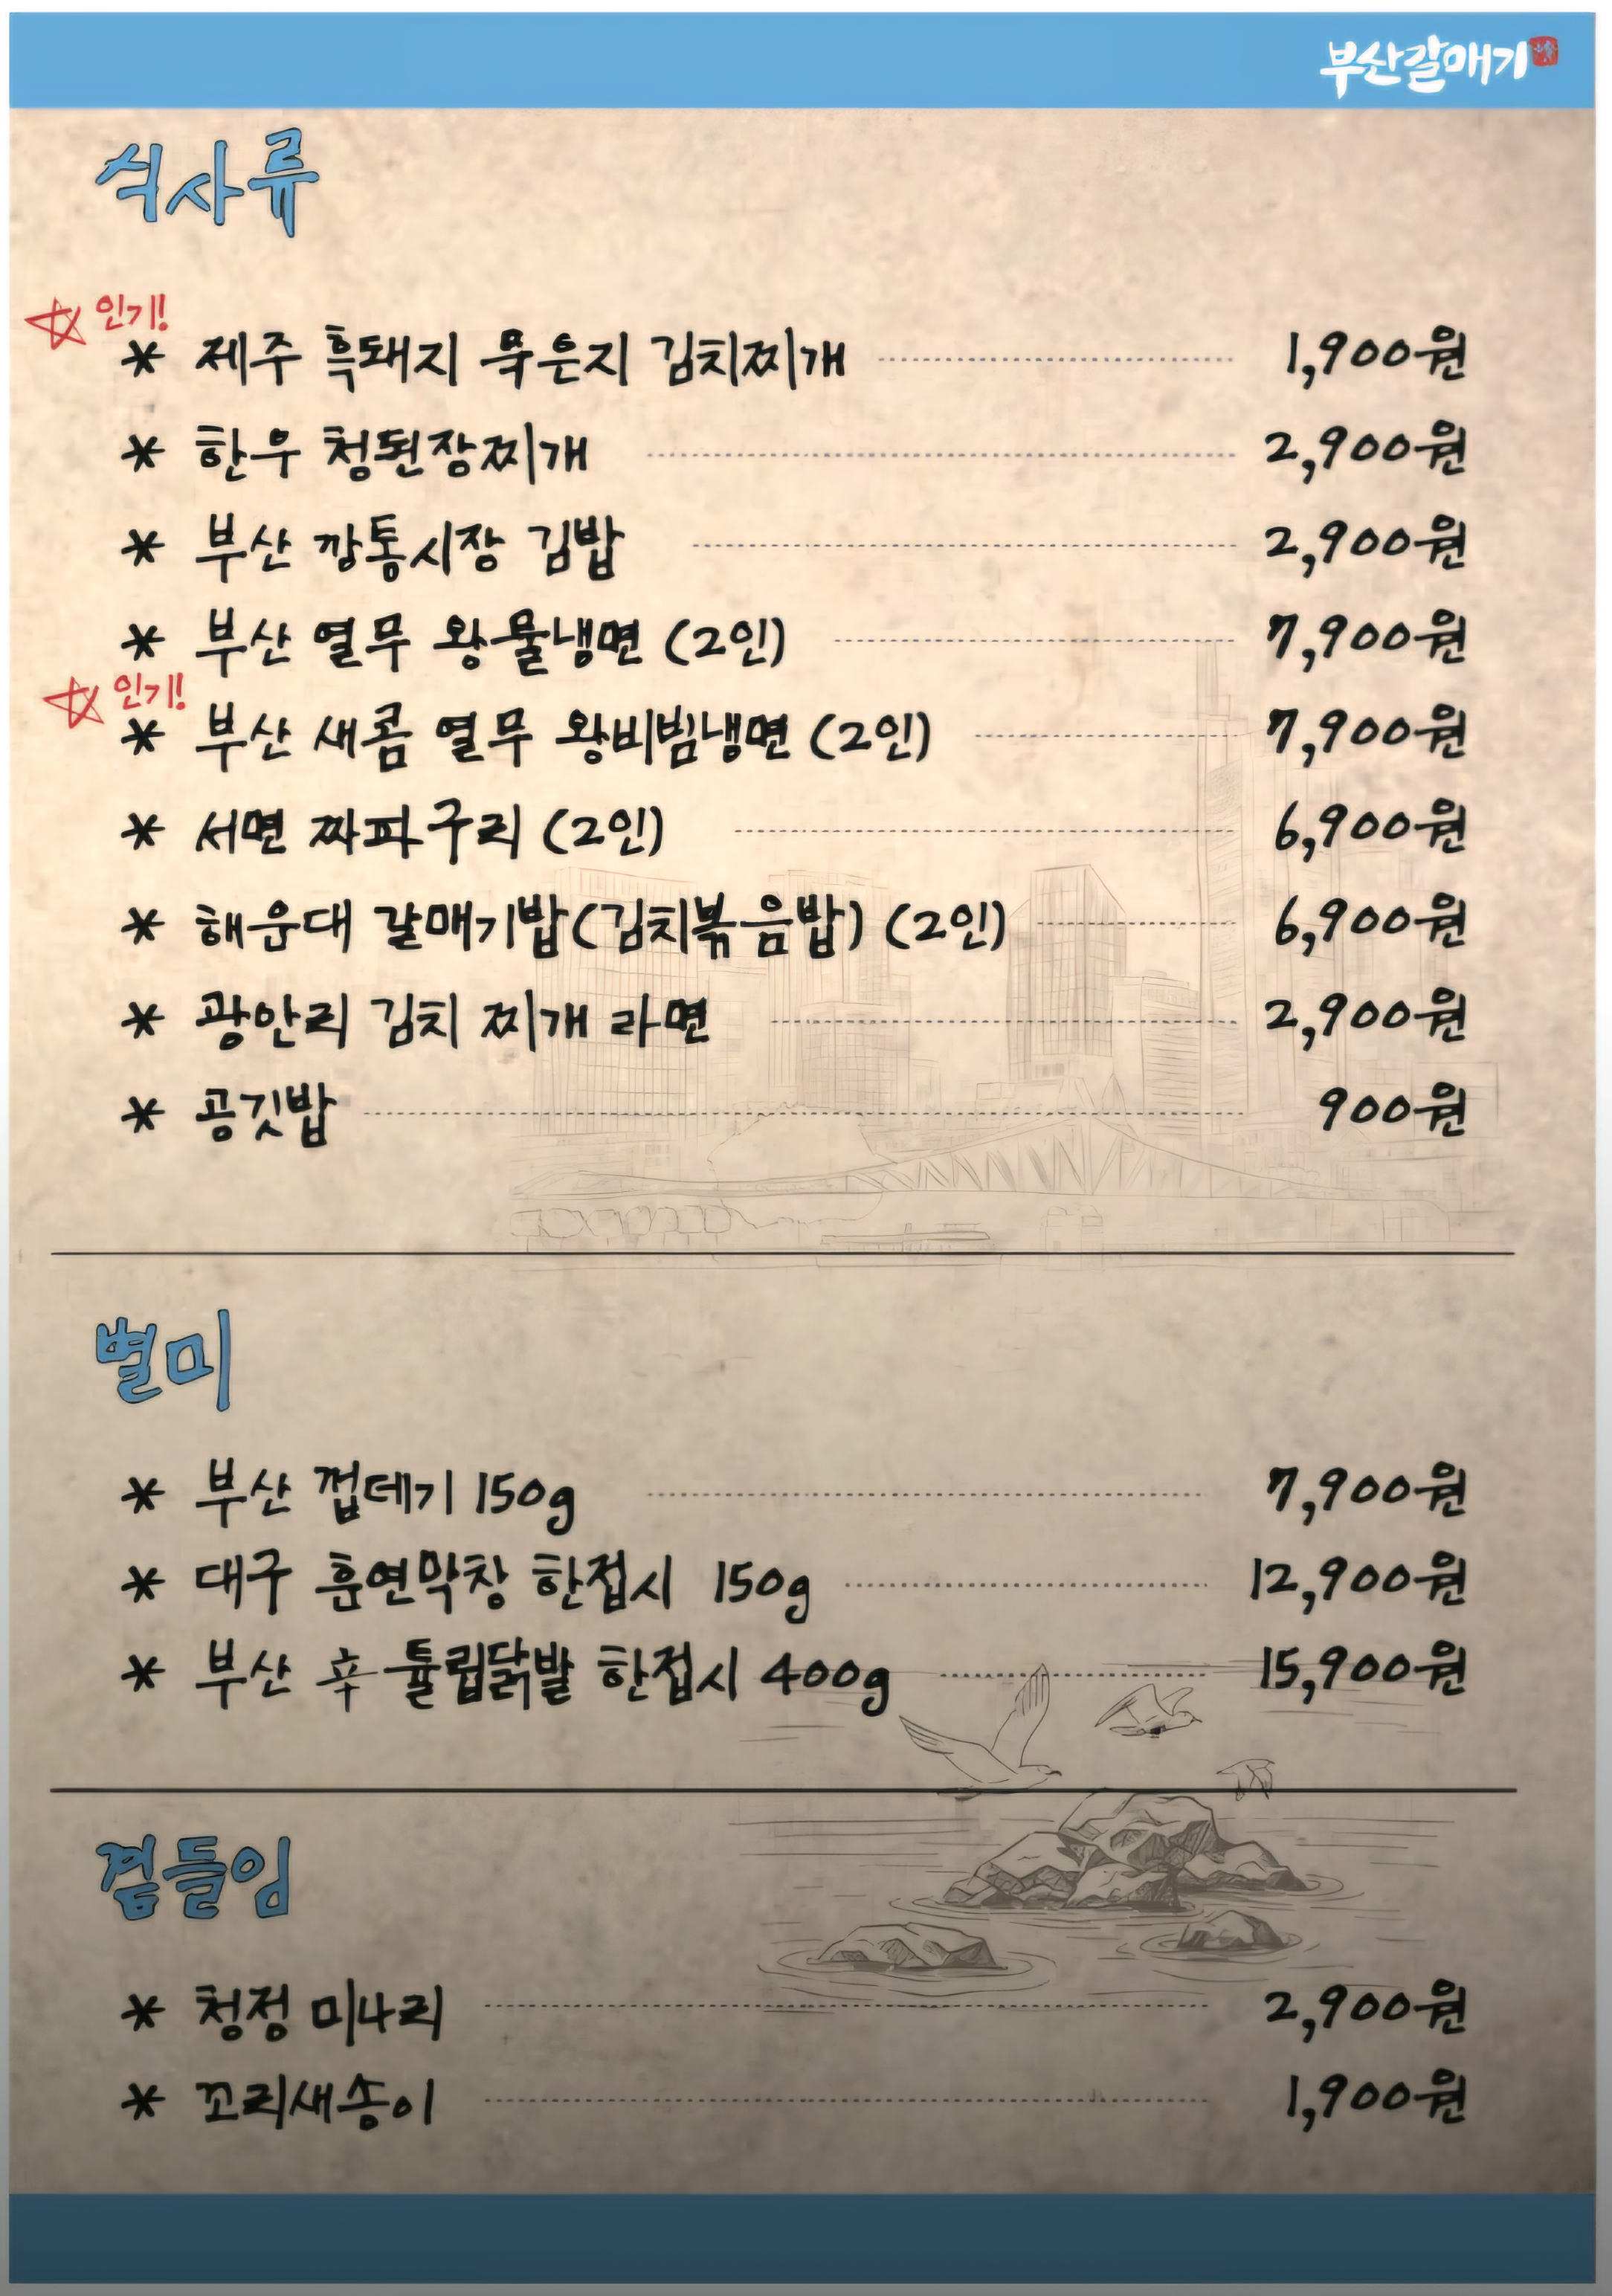 부산갈매기
식사류
☆ 인기!
* 제주 흑돼지 묵은지 김치찌개 1,900원
* 한우 청된장찌개 2,900원
* 부산 깡통시장 김밥 2,900원
* 부산 열무 왕물냉면 (2인) 7,900원
☆ 인기!
* 부산 새콤 열무 왕비빔냉면 (2인) 7,900원
* 서면 짜파구리 (2인) 6,900원
* 해운대 갈매기밥(김치볶음밥) (2인) 6,900원
* 광안리 김치 찌개 라면 2,900원
* 공깃밥 900원
별미
* 부산 껍데기 150g 7,900원
* 대구 훈연막창 한접시 150g 12,900원
* 부산 辛 튤립닭발 한접시 400g 15,900원
곁들임
* 청정 미나리 2,900원
* 꼬리새송이 1,900원